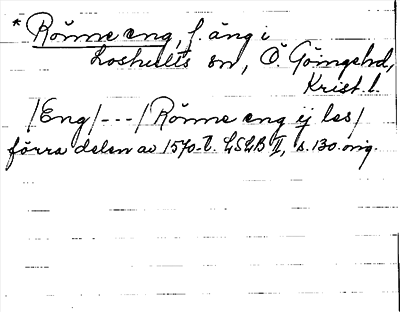 * Rönne eng, f. äng i
Loshults sn, Ö. Göingehd,
Krist. l.
/Eng/---/Rönne eng ij les/
förra delen av 1570-t. LSLB II, s. 130. orig.